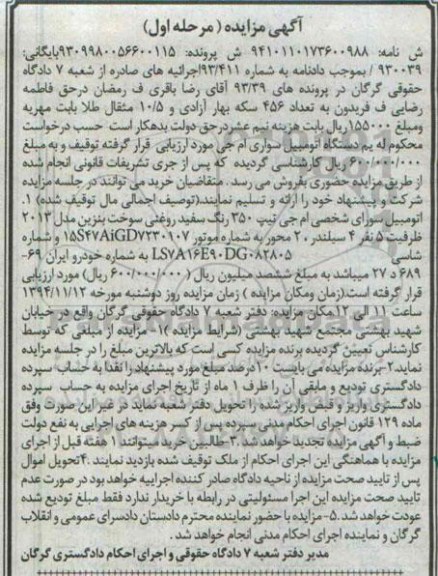 آگهی مزایده ( مرحله اول)
ش نامه: ۹۴۱۰۱۱۰۱۷۳۶۰۰۹۸۸ ش پرونده: ۹۳۰۹۹۸۰۰۵۶۶۰۰۱۱۵بایگانی:
۹۳۰۰۳۹ / بموجب دادنامه به شماره ۹۳/۴۱۱اجرائیه های صادره از شعبه ۷ دادگاه
حقوقی گرگان در پرونده های ۹۳/۳۹ آقای رضا باقری ف رمضان درحق فاطمه
رضایی ف فریدون به تعداد ۴۵۶ سکه بهار آزادی و ۱۰/۵ مثقال طلا بابت مهریه
ومبلغ ۱۵۵۰۰۰ریال بابت هزینه نیم عشردرحق دولت بدهکار است- حسب درخواست
محکوم له یم دستگاه اتومبیل سواری ام جی مورد ارزیابی قرار گرفته توقیف و به مبلغ
۶۰۰/۰۰۰/۰۰۰ ریال کارشناسی گردیده که پس از جری تشریفات قانونی انجام شده
از طریق مزایده حضوری بفروش می رسد. متقاضیان خرید می توانند در جلسه مزایده
شرکت و پیشنهاد خود را ارائه و تسلیم نمایند.(توصیف اجمالی مال توقیف شده) ۱.
اتومبیل سواری شخصی ام جی تیپ ۳۵۰ رنگ سفید روغنی سوخت بنزین مدل ۲۰۱۳
ظرفیت ۵ نفر ۴ سیلندر ۲۰ محور به شماره موتور ۱۵S۴VAiGDV۲۳۳۰۱۰۷ و شماره
شاسی LSVA۱۶E۹۰DG۰۸۲۸۰۵ به شماره خودرو ایران ۶۹-
۶۸۹ د ۲۷ میباشد به مبلغ ششصد میلیون ریال ( ۶۰۰/۰۰۰/۰۰۰ ریال) مورد ارزیابی
قرار گرفته است(زمان ومکان مزایده ) زمان مزایده روز دوشنبه مورخه ۱۳۹۴/۱۱/۱۲
ساعت ۱۱ الی ۱۲.مکان مزایده: دفتر شعبه ۷ دادگاه حقوقی گرگان واقع در خیابان
شهید بهشتی مجتمع شهید بهشتی (شرایط مزایده )۱- مزایده از مبلغی که توسط
کارشناس تعیین گردیده برنده مزایده کسی است که بالاترین مبلغ را در جلسه مزایده
نماید۲-برنده مزایده می بایست ۱۰درصد مبلغ مورد پیشنهاد را نقدا به حساب سپرده
دادگستری تودیع و مابقی آن را ظرف ۱ ماه از تاریخ اجرای مزایده به حساب سپرده
دادگستری واریز و قبض واریز شده را تحویل دفتر شعبه نماید در غیر این صورت وفق
ماده ۱۲۹ قانون اجرای احکام مدنی سپرده پس از کسر هزینه های اجرایی به نفع دولت
ضبط و آگهی مزایده تجدید خواهد شد ۳-طالبین خرید میتوانند ۱ هفته قبل از اجرای
مزایده با هماهنگی این اجرای احکام از ملک توقیف شده بازدید نمایند ۴-تحویل اموال
پس از تایید صحت مزایده از ناحیه دادگاه صادر کننده اجراییه خواهد بود در صورت عدم
تایید صحت مزایده این اجرا مسئولیتی در رابطه با خریدار ندارد فقط مبلغ تودیع شده
عودت خواهد شد ۵-مزایده با حضور نماینده محترم دادستان دادسرای عمومی و انقلاب
گرگان و نماینده اجرای احکام مدنی انجام خواهد شد .
مدیر دفتر شعبه ۷ دادگاه حقوقی و اجرای احکام دادگستری گرگان